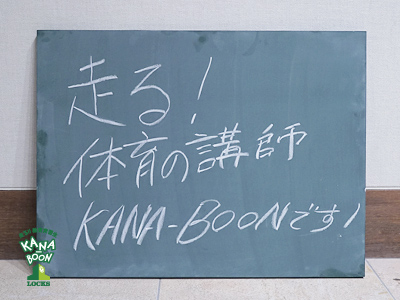 走る!
体育の講師
KANA-BOONです!
KANA
-BOON
LOCKS